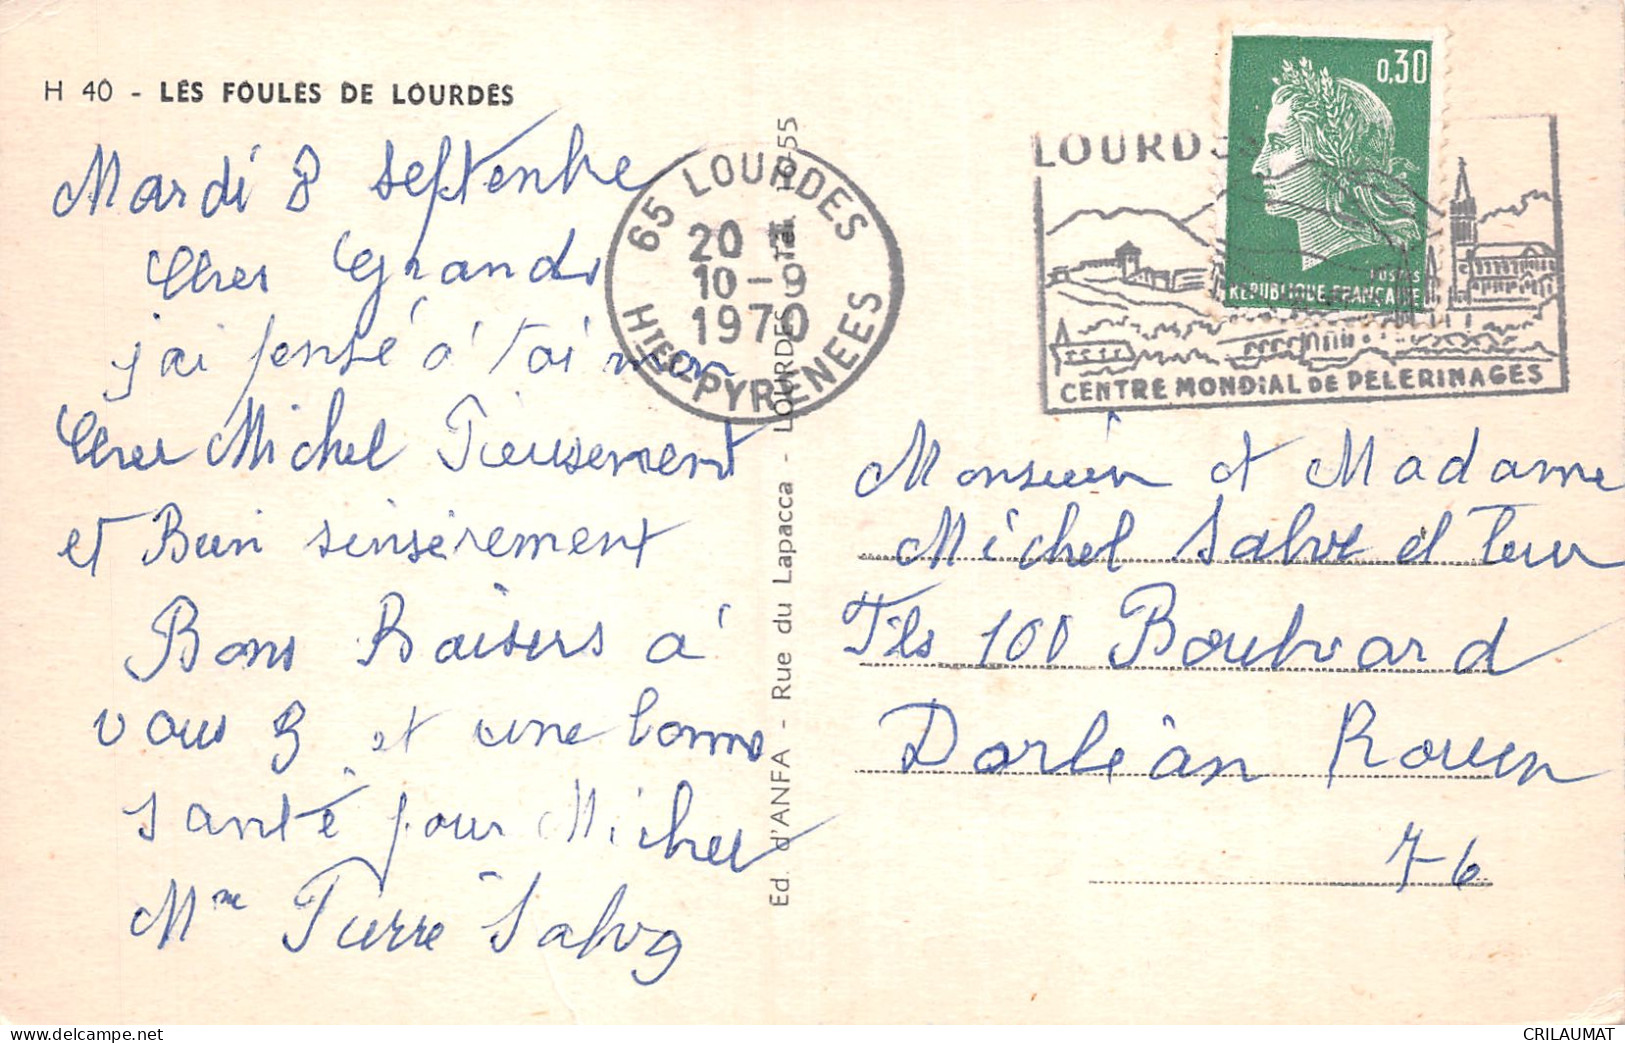 H 40 - LES FOULES DE LOURDES
Mardi 8 septenbre
Cher Grands
j'ai pensé á toi mon
Cher Michel Pieusement
et Bien sinsérement
Bons Baisers á
vous 3 et une bonne
santé pour Michel
Mme Pierre Salva
Ed. d'ANFA - Rue du Lapacca - LOURDES - Tél. 10-55
65 LOURDES
20 H
10 - 9
1970
HTES PYRENEES
0,30
POSTES
REPUBLIQUE FRANÇAISE
LOURDES
CENTRE MONDIAL DE PELERINAGES
Monsieur et Madame
Michel Salve et leur
Fils 100 Boulevard
Dorléan Rouen
76
CRILAUMAT